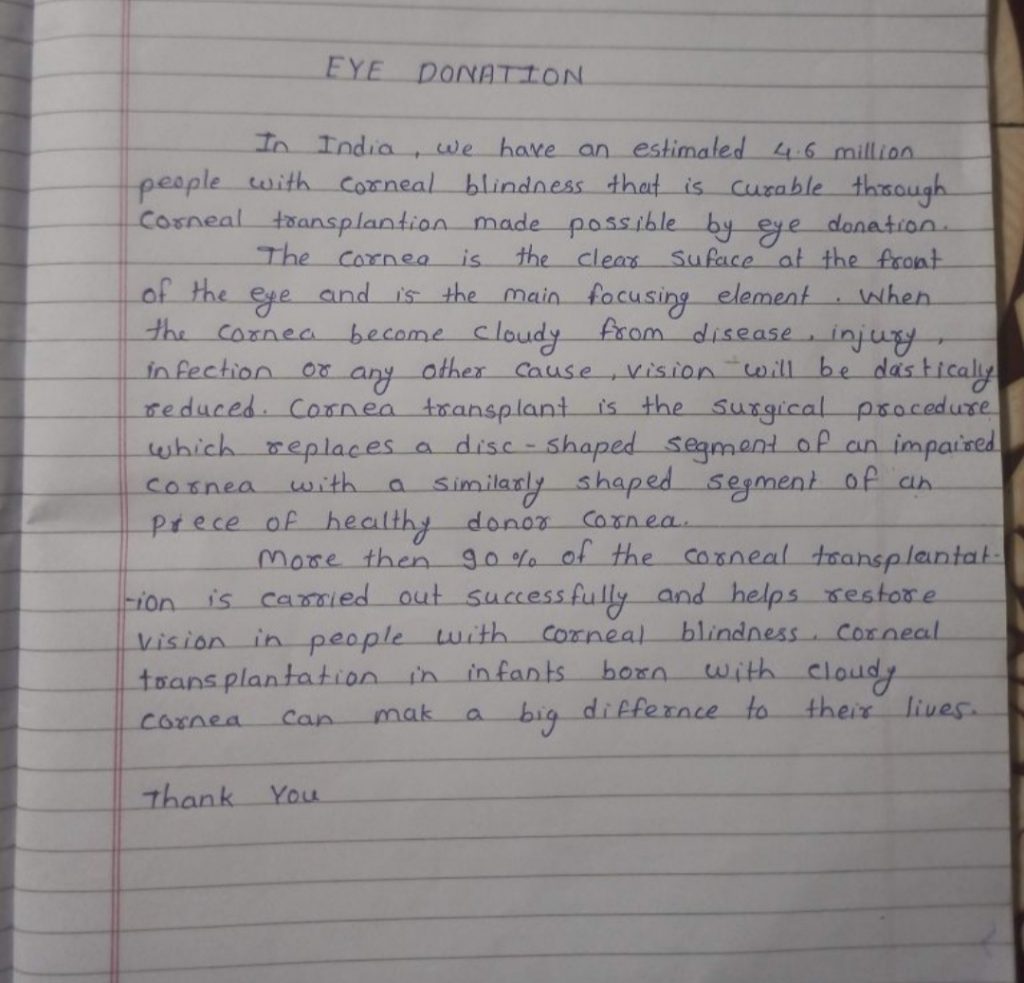 EYE DONATION
In India, we have an estimated 4.6 million
people with corneal blindness that is curable through
corneal transplantion made possible by eye donation.
The cornea is the clear suface at the front
of the eye and is the main focusing element. When
the cornea become cloudy from disease, injury,
infection or any other cause, vision will be dastically
reduced. Cornea transplant is the surgical procedure
which replaces a disc-shaped segment of an impaired
cornea with a similarly shaped segment of an
piece of healthy donor cornea.
More then 90% of the corneal transplantat-
-ion is carried out successfully and helps restore
vision in people with corneal blindness. Corneal
transplantation in infants born with cloudy
cornea can mak a big differnce to their lives.
Thank You